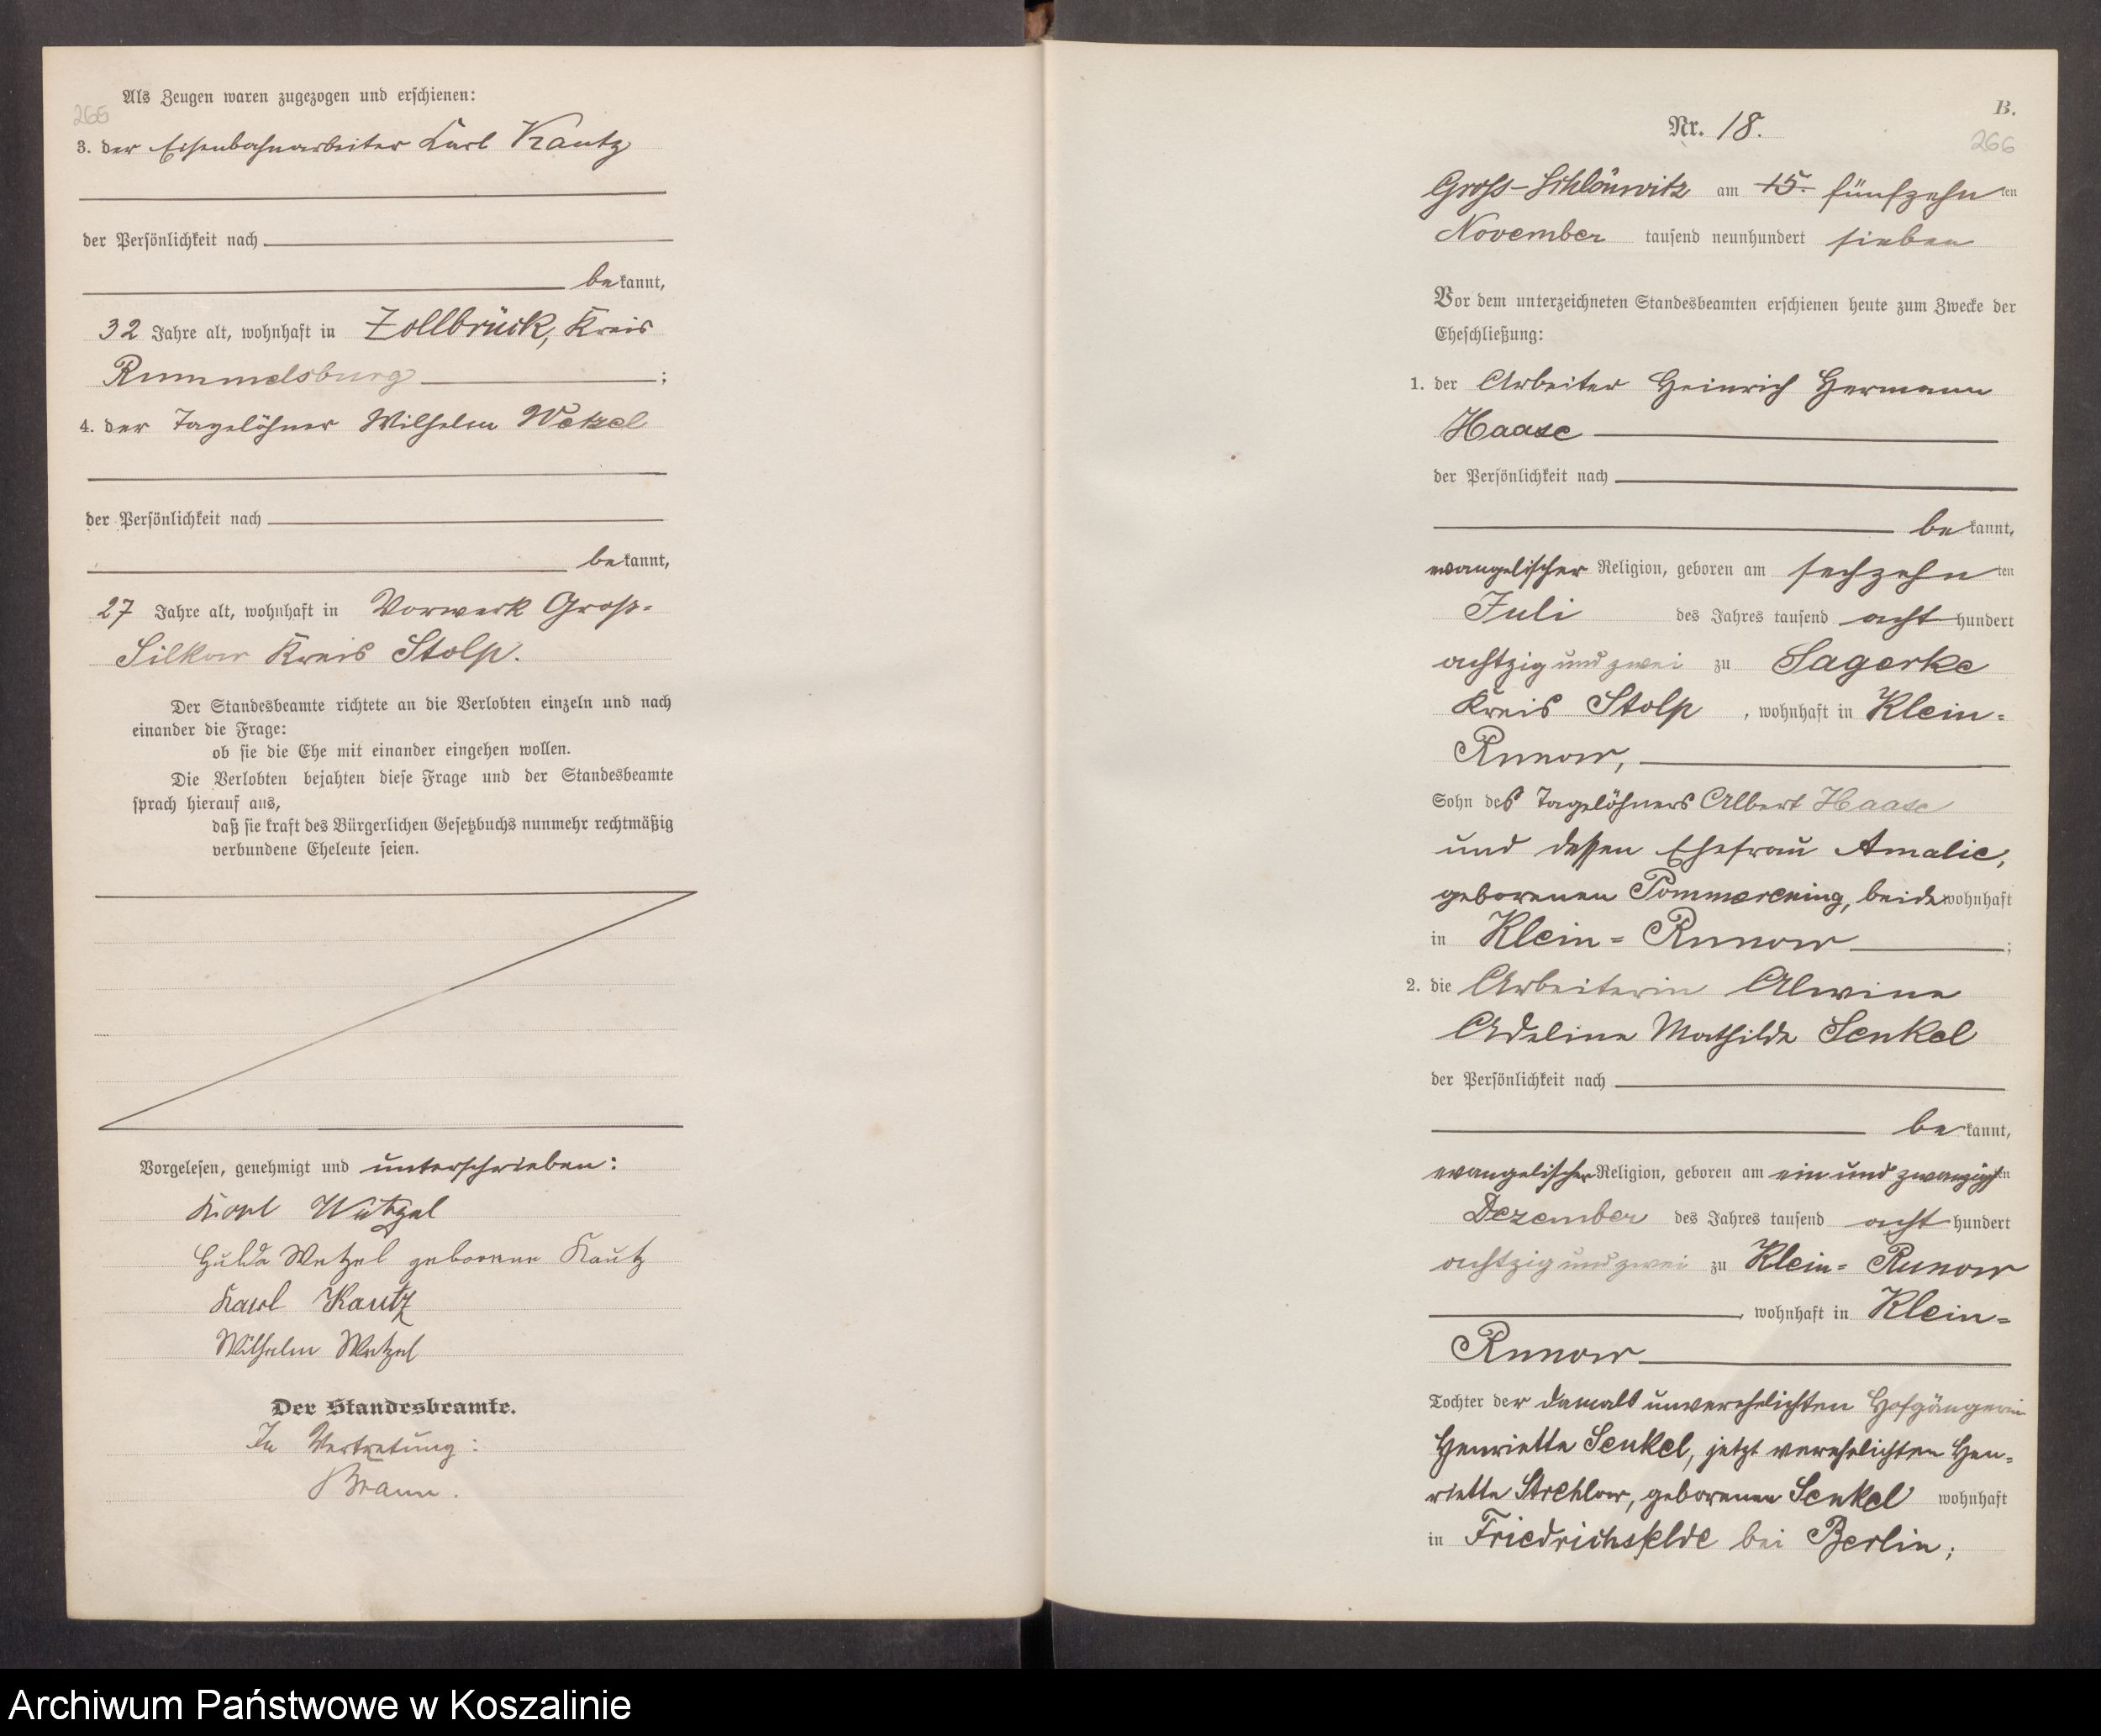 265
Als Zeugen waren zugezogen und erschienen:
3. der Eisenbahnarbeiter Karl Kautz
der Persönlichkeit nach
bekannt,
32 Jahre alt, wohnhaft in Zollbrück, Kreis
Rummelsburg ;
4. der Tagelöhner Wilhelm Wetzel
der Persönlichkeit nach
bekannt,
27 Jahre alt, wohnhaft in Vorwerk Groß-
Silkow Kreis Stolp.
Der Standesbeamte richtete an die Verlobten einzeln und nach
einander die Frage:
ob sie die Ehe mit einander eingehen wollen.
Die Verlobten bejahten diese Frage und der Standesbeamte
sprach hierauf aus,
daß sie kraft des Bürgerlichen Gesetzbuchs nunmehr rechtmäßig
verbundene Eheleute seien.
Vorgelesen, genehmigt und unterschrieben:
Karl Wetzel
Hulda Wetzel geborene Kautz
Karl Kautz
Wilhelm Wetzel
Der Standesbeamte.
In Vertretung:
Braun.
B.
Nr. 18.
266
Gross-Schlönwitz am 15. fünfzehn ten
November tausend neunhundert sieben
Vor dem unterzeichneten Standesbeamten erschienen heute zum Zwecke der
Eheschließung:
1. der Arbeiter Heinrich Hermann
Haase
der Persönlichkeit nach
bekannt,
evangelischer Religion, geboren am sechzehn ten
Juli des Jahres tausend acht hundert
achtzig und zwei zu Sagerke
Kreis Stolp, wohnhaft in Klein-
Runow,
Sohn des Tagelöhners Albert Haase
und dessen Ehefrau Amalie,
geborenen Pommerening, beide wohnhaft
in Klein-Runow ;
2. die Arbeiterin Alwine
Adeline Mathilde Senkel
der Persönlichkeit nach
bekannt,
evangelischer Religion, geboren am ein und zwanzigsten
Dezember des Jahres tausend acht hundert
achtzig und zwei zu Klein-Runow
, wohnhaft in Klein-
Runow
Tochter der damals unverehelichten Hofgängerin
Henriette Senkel, jetzt verehelichten Hen-
riette Strehlow, geborenen Senkel wohnhaft
in Friedrichsfelde bei Berlin;
Archiwum Państwowe w Koszalinie